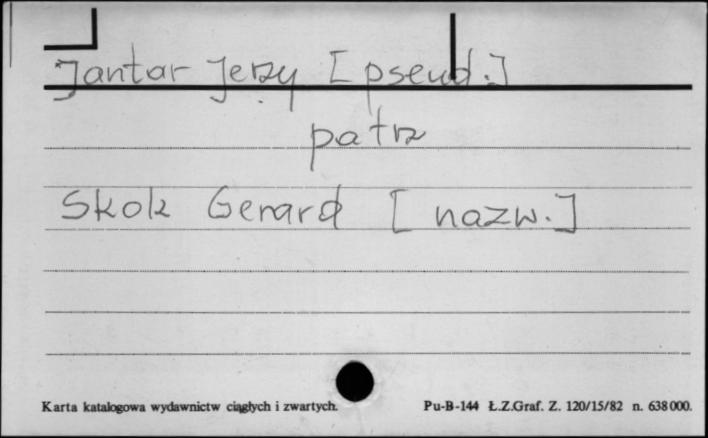 Jantar Jerzy [pseud.]
patrz
Skok Gerard [nazw.]
Karta katalogowa wydawnictw ciągłych i zwartych.
Pu-B-144 Ł.Z.Graf. Z. 120/15/82 n. 638000.